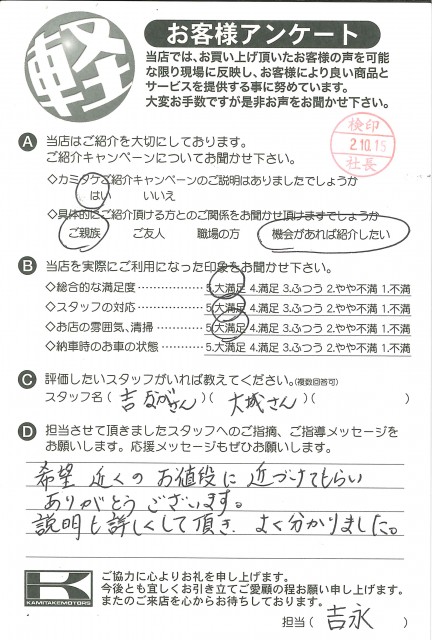 軽
お客様アンケート
当店では、お買い上げ頂いたお客様の声を可能
な限り現場に反映し、お客様により良い商品と
サービスを提供する事に努めています。
大変お手数ですが是非お声をお聞かせ下さい。
検印
2.10.15
社長
A 当店はご紹介を大切にしております。
ご紹介キャンペーンについてお聞かせ下さい。
◇カミタケご紹介キャンペーンのご説明はありましたでしょうか
はい いいえ
◇具体的にご紹介頂ける方とのご関係をお聞かせ頂けますでしょうか
ご親族 ご友人 職場の方 機会があれば紹介したい
B 当店を実際にご利用になった印象をお聞かせ下さい。
◇総合的な満足度 5.大満足 4.満足 3.ふつう 2.やや不満 1.不満
◇スタッフの対応 5.大満足 4.満足 3.ふつう 2.やや不満 1.不満
◇お店の雰囲気、清掃 5.大満足 4.満足 3.ふつう 2.やや不満 1.不満
◇納車時のお車の状態 5.大満足 4.満足 3.ふつう 2.やや不満 1.不満
C 評価したいスタッフがいれば教えてください。(複数回答可)
スタッフ名(吉ながさん)(大城さん)( )
D 担当させて頂きましたスタッフへのご指摘、ご指導メッセージを
お願いします。応援メッセージもぜひお願いします。
希望近くのお値段に近づけてもらい
ありがとうございます。
説明も詳しくして頂き、よく分かりました。
K
KAMITAKEMOTORS
ご協力に心よりお礼を申し上げます。
今後とも宜しくお引き立てご愛顧の程お願い申し上げます。
またのご来店を心からお待ちしております。
担当(吉永)